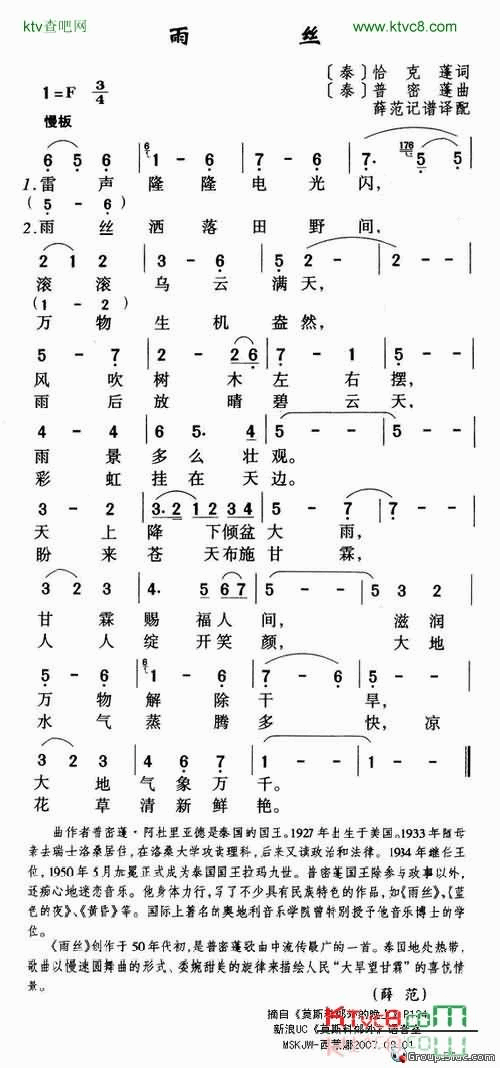 ktv查吧网
www.ktvc8.com
雨 丝
〔泰〕恰 克 蓬词
〔泰〕普 密 蓬曲
薛范记谱译配
1=F 3/4
慢板
6 5 6 | 6 1 - 6 | 7 - 6 | 7. 176 5 5 |
1.雷 声 隆 隆 电 光 闪,
(5 - 6)
2.雨 丝 洒 落 田 野 间,
2 1 2 | 3 - 6 | 2 - 5 | 5 - - | 2 - - |
滚 滚 乌 云 满 天,
(1 - 2)
万 物 生 机 盎 然,
5 - 7 | 2 - 2 6 | 7 - 1 | 5 - - |
风 吹 树 木 左 右 摆,
雨 后 放 晴 碧 云 天,
4 - 4 | 3 - 6 | 6 5. 4 | 5 - - | 5 - - |
雨 景 多 么 壮 观。
彩 虹 挂 在 天 边。
7 - 3 | 3.2 12 34 | 5 - 7 | 7 - - |
天 上 降 下倾盆大 雨,
盼 来 苍 天布施甘 霖,
3 2 3 | 4. 5 67 | 5 - - | 5 3 2 |
甘 霖 赐 福人 间, 滋 润
人 人 绽 开笑 颜, 大 地
5 - 6 | 6 1 - 6 | 7 - 6 | 7 - 2 |
万 物 解 除 干 旱,
水 气 蒸 腾 多 快, 凉
3 2 3 | 4 6 7 | 1 - - | 1 - - ‖
大 地 气 象 万 千。
花 草 清 新 鲜 艳。
曲作者普密蓬·阿杜里亚德是泰国的国王。1927年出生于美国。1933年随母
亲去瑞士洛桑居住,在洛桑大学攻读理科,后来又读政治和法律。1934年继任王
位,1950年5月加冕正式成为泰国国王拉玛九世。普密蓬国王除参与政事以外,
还痴心地迷恋音乐。他身体力行,写了不少具有民族特色的作品,如《雨丝》、《蓝
色的夜》、《黄昏》等。国际上著名的奥地利音乐学院曾特别授予他音乐博士的学
位。
《雨丝》创作于50年代初,是普密蓬歌曲中流传最广的一首。泰国地处热带,
歌曲以慢速圆舞曲的形式、委婉甜美的旋律来描绘人民“大旱望甘霖”的喜悦情
景。
(薛 范)
摘自《莫斯科郊外的晚上》P134
新浪UC《莫斯科郊外》语音室
MSKJW-西蒙娜2007.09.01
Ktvc8.com
GroupStuc.com